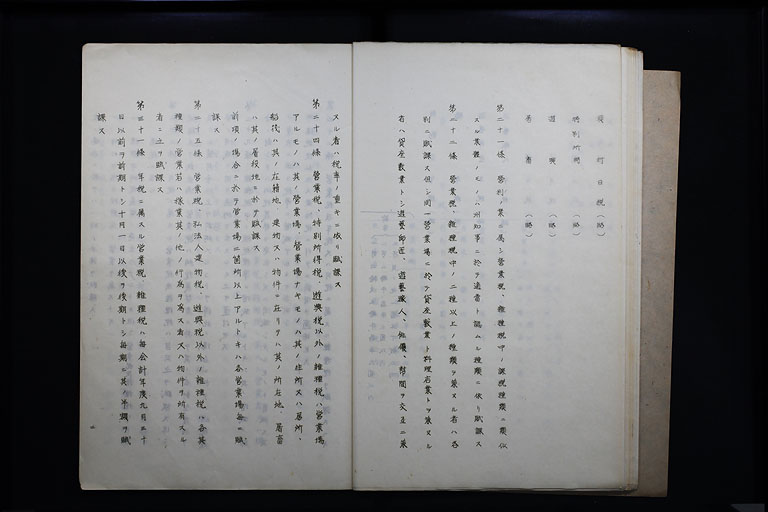 日税（略）
特別所得（略）
（略）
（略）
第二十一條 營利ノ業ニ属シ營業税、雜種税中ノ課税種類ニ類似
スル業體ノモノハ州知事ニ於テ適當ト認ムル種類ニ依リ賦課ス
第二十二條 營業税、雜種税中ノ二種以上ノ種類ヲ兼ヌル者ハ各
別ニ賦課ス但シ同一營業場ニ於テ貸座敷業ト料理店業トヲ兼ヌル
者ハ貸座敷業トシ遊藝師匠、遊藝職人、俳優、幇間ヲ交互ニ兼
スル者ハ税率ノ重キニ從リ賦課ス
第二十四條 營業税、特別所得税、遊興税以外ノ雜種税ハ營業場
アルモノハ其ノ營業場、營業場ナキモノハ其ノ住所又ハ居所、
船後ハ其ノ在籍地、建物又ハ物件ニ在リテハ其ノ所在地、屠畜
ハ其ノ屠殺地ニ於テ賦課ス
前項ノ場合ニ於テ營業場二箇所以上アルトキハ各營業場毎ニ賦
課ス
第二十五條 營業税、私法人建物税、遊興税以外ノ雜種税ハ各其
種類ノ營業若ハ稼業其ノ他ノ行為ヲ為ス者又ハ物件ヲ所有スル
者ニ之ヲ賦課ス
第三十一條 年税ニ属スル營業税、雜種税ハ毎會計年度九月三十
日以前ヲ前期トシ十月一日以後ヲ後期トシ毎期ニ其ノ半額ヲ賦
課ス